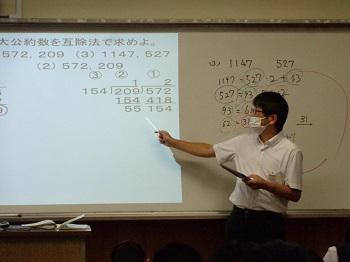 大公約数を互除法で求めよ。
572, 209 (3) 1147, 527
(2) 572, 209
③ ② ①
1 2
154 209 572
154 418
55 154
(3) 1147 527
1147 = 527 · 2 + 93
527 = 93
93 =
62 = 31
31